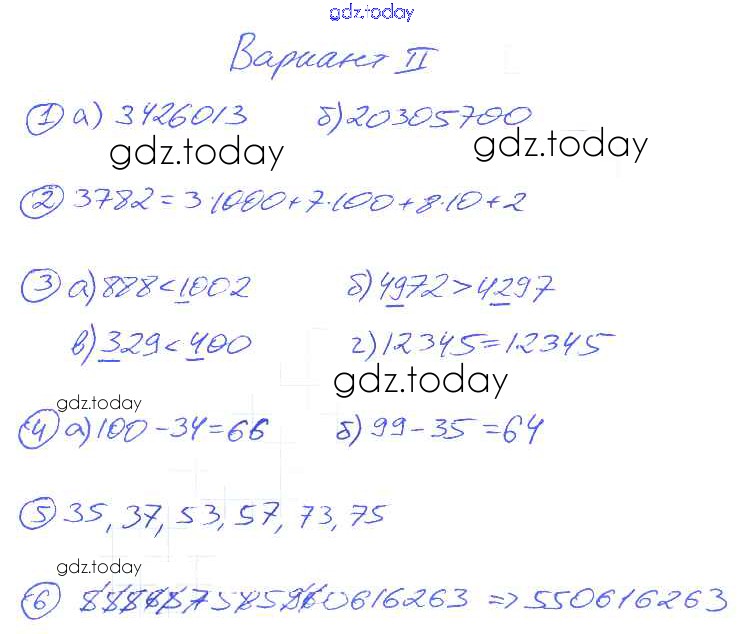 gdz.today
Вариант II
① а) 3426013 б) 20305700
gdz.today gdz.today
② 3782 = 3·1000 + 7·100 + 8·10 + 2
③ а) 888 < 1002 б) 4972 > 4297
в) 329 < 400 г) 12345 = 12345
gdz.today gdz.today
④ а) 100 - 34 = 66 б) 99 - 35 = 64
⑤ 35, 37, 53, 57, 73, 75
gdz.today
⑥ 0616263 => 550616263